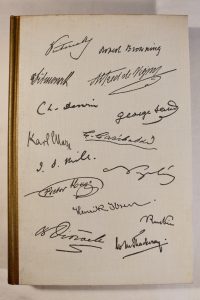 Robert Browning
Alfred de Vigny
Ch. Darwin
George Sand
Karl Marx
G. Garibaldi
J. S. Mill
Victor Hugo
Henrik Ibsen
Ruskin
B. Disraeli
W M Thackeray